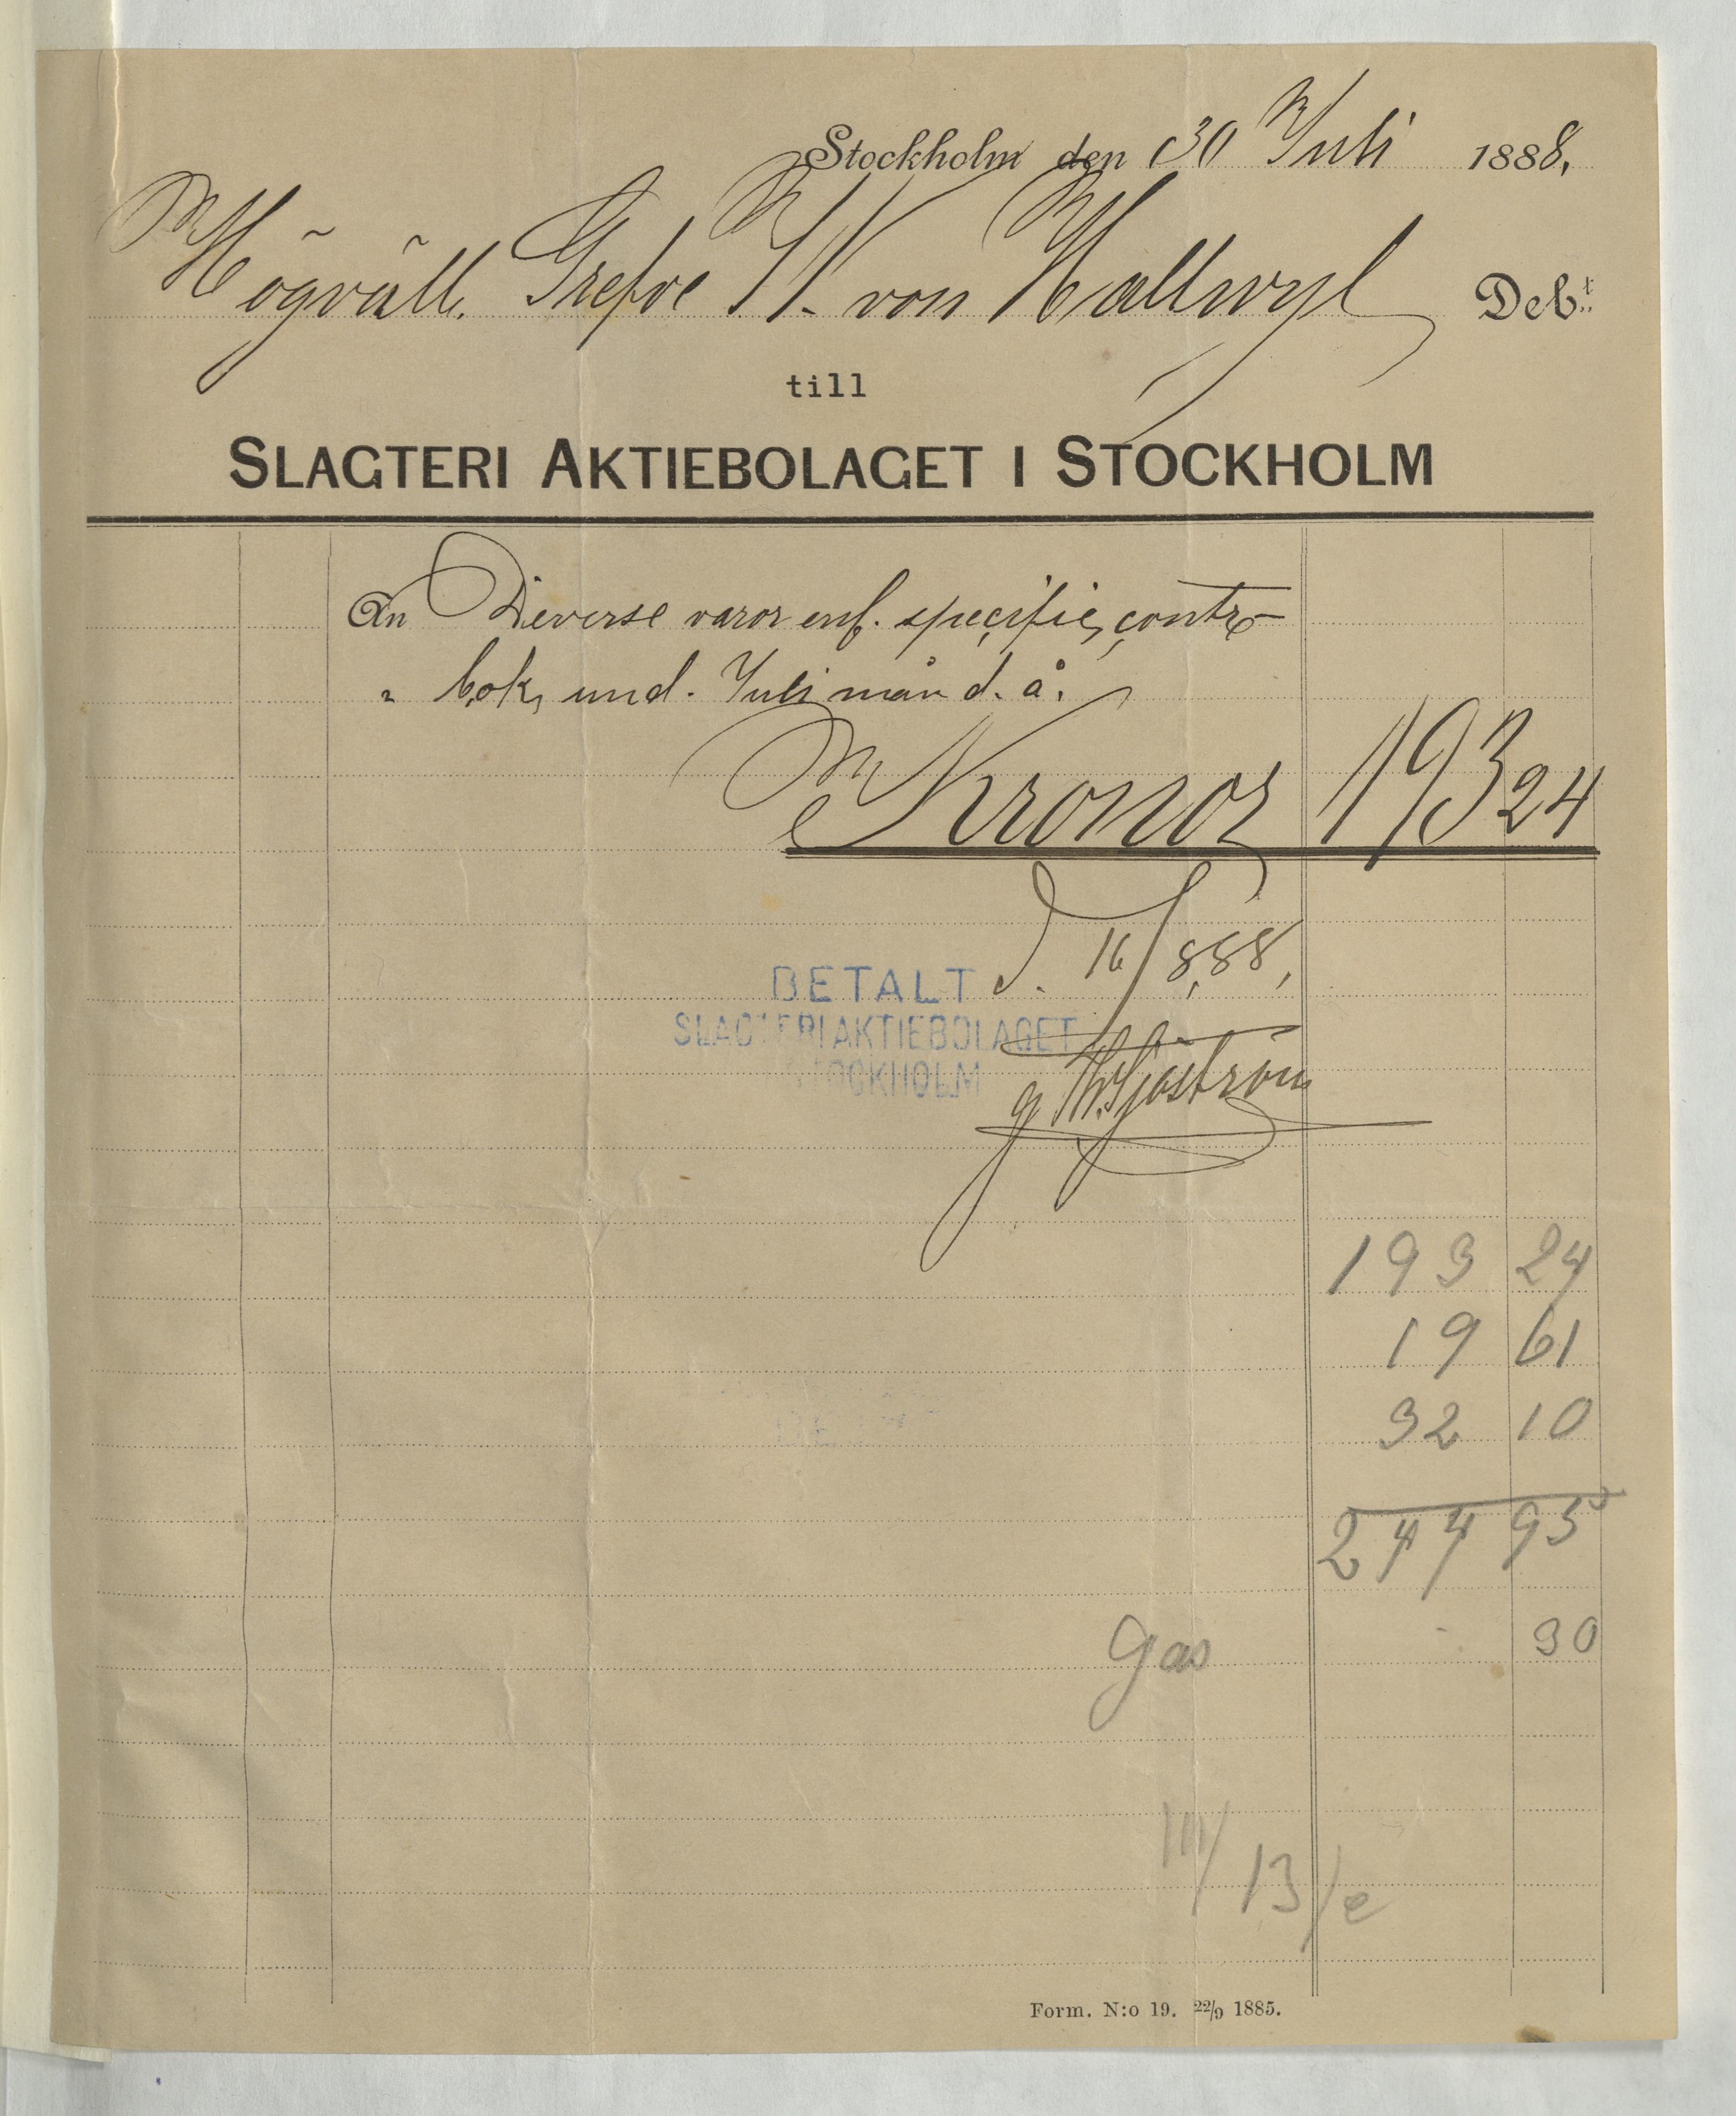 Stockholm den 30 Juli 1888.
Högväll. Grefve W. von Hallwyl Deb:t
till
SLAGTERI AKTIEBOLAGET I STOCKHOLM
An Diverse varor enl. specific, contra
" bok, und. Juli mån d. å.
Kronor 193 24
BETALT d. 16/8 88,
SLAGTERIAKTIEBOLAGET
STOCKHOLM
g Th. Sjöström
193 24
19 61
32 10
244 95
Gas - 30
III/13/e
Form. N:o 19. 22/9 1885.